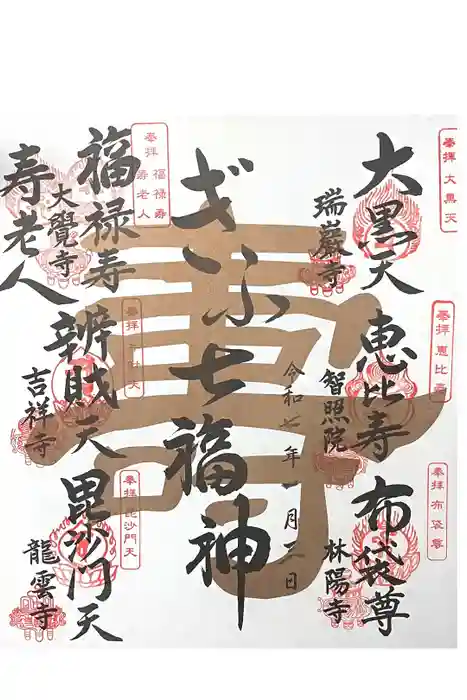 奉拝 大黒天
大黒天
瑞巌寺
奉拝 恵比寿
恵比寿
智照院
奉拝 布袋尊
布袋尊
林陽寺
令和七年一月三日
ぎふ七福神
寿
奉拝 福禄寿 寿老人
福禄寿
寿老人
大覺寺
辨財天
吉祥寺
奉拝 毘沙門天
毘沙門天
龍雲寺